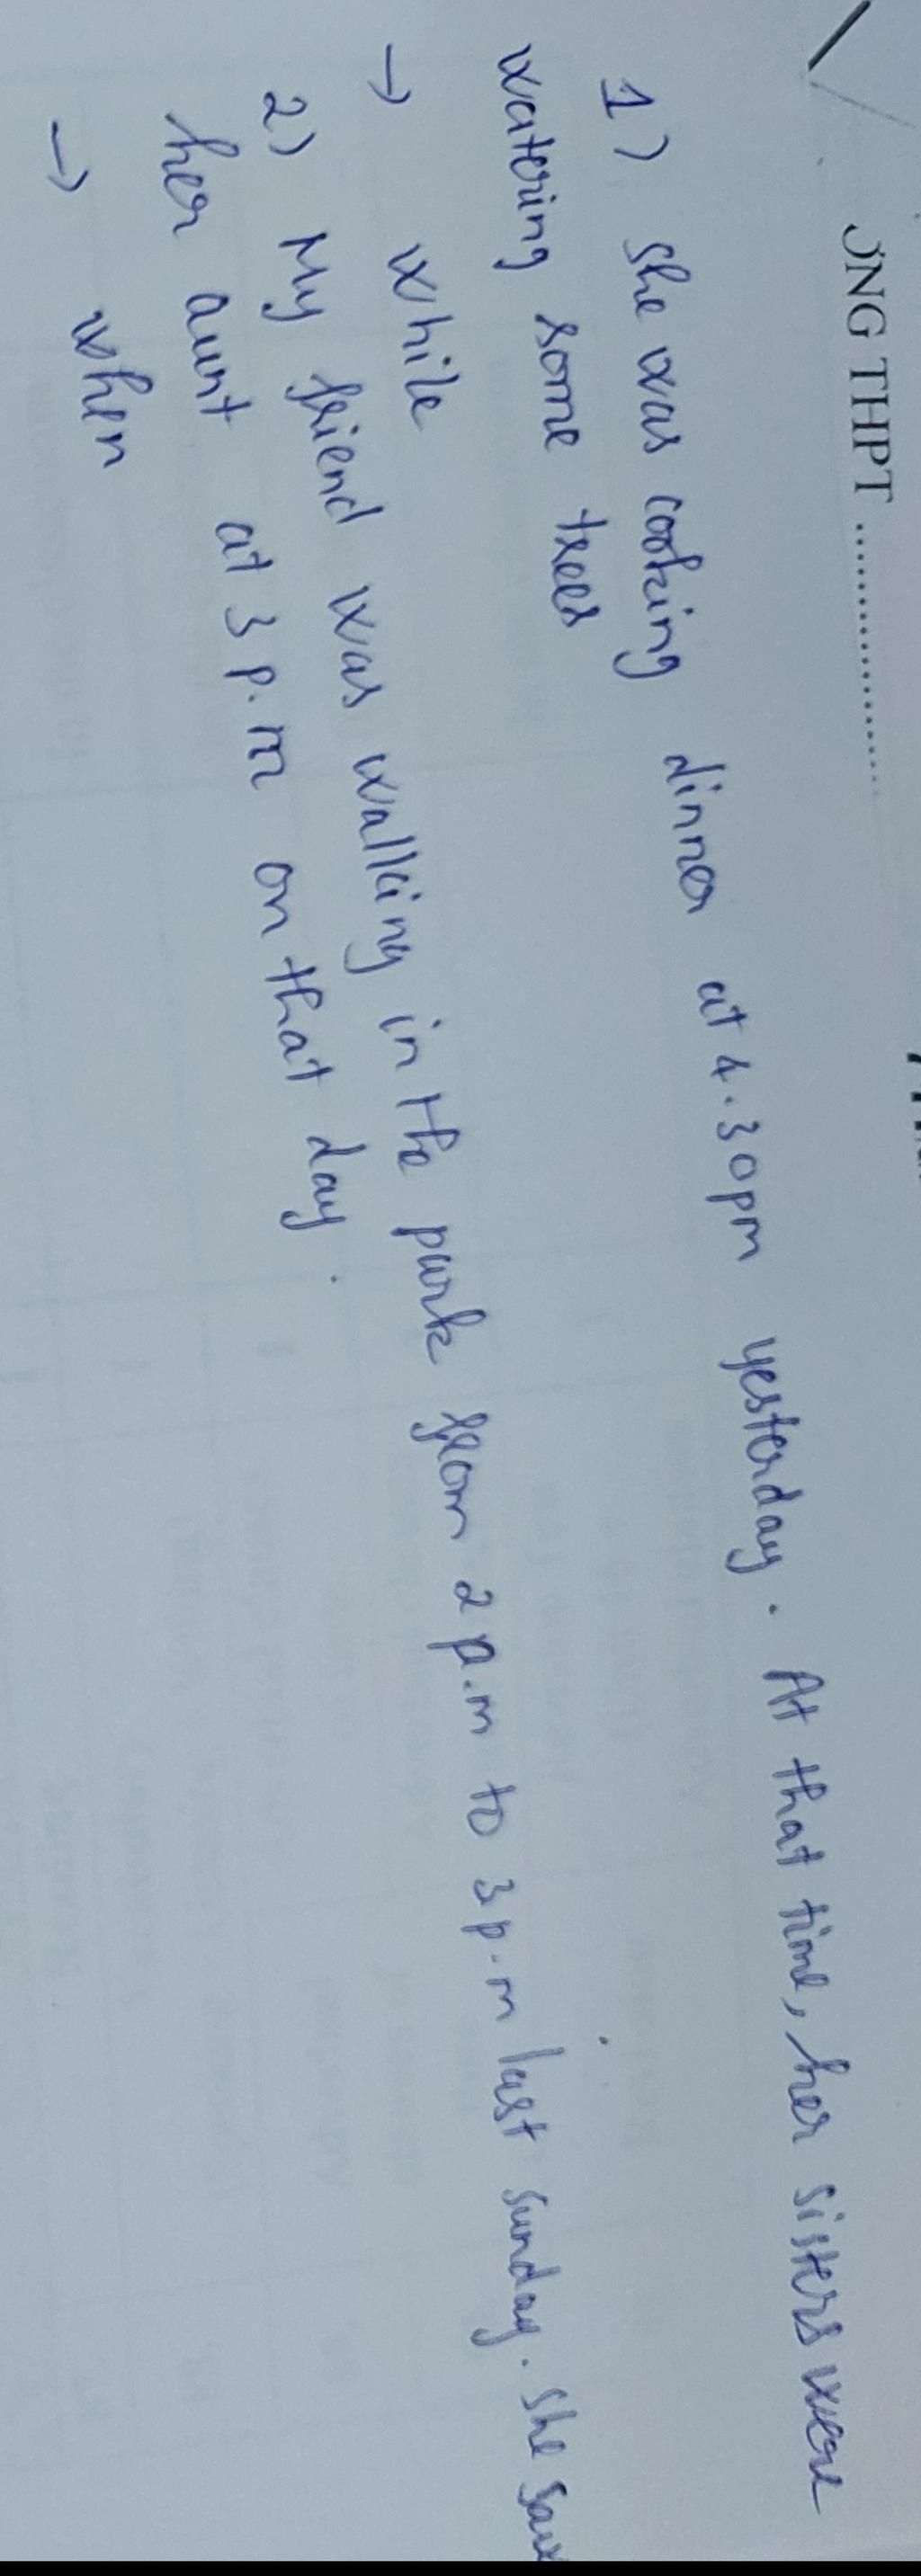 ƠNG THPT ................
1) She was cooking dinner at 4.30pm yesterday. At that time, her sisters were
watering some trees
→ while
2) My friend was walking in the park from 2 p.m to 3 p.m last sunday. She saw
her aunt at 3 p.m on that day.
→ when